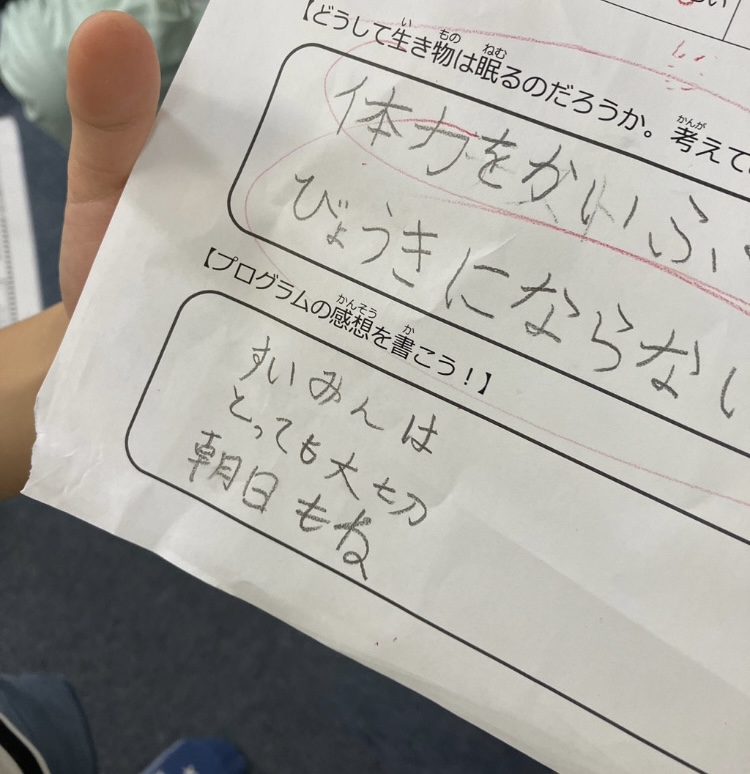 【どうして生き物は眠るのだろうか。考えて
体力をかいふ
びょうきにならない
【プログラムの感想を書こう！】
すいみんは
とっても大切
朝日もね